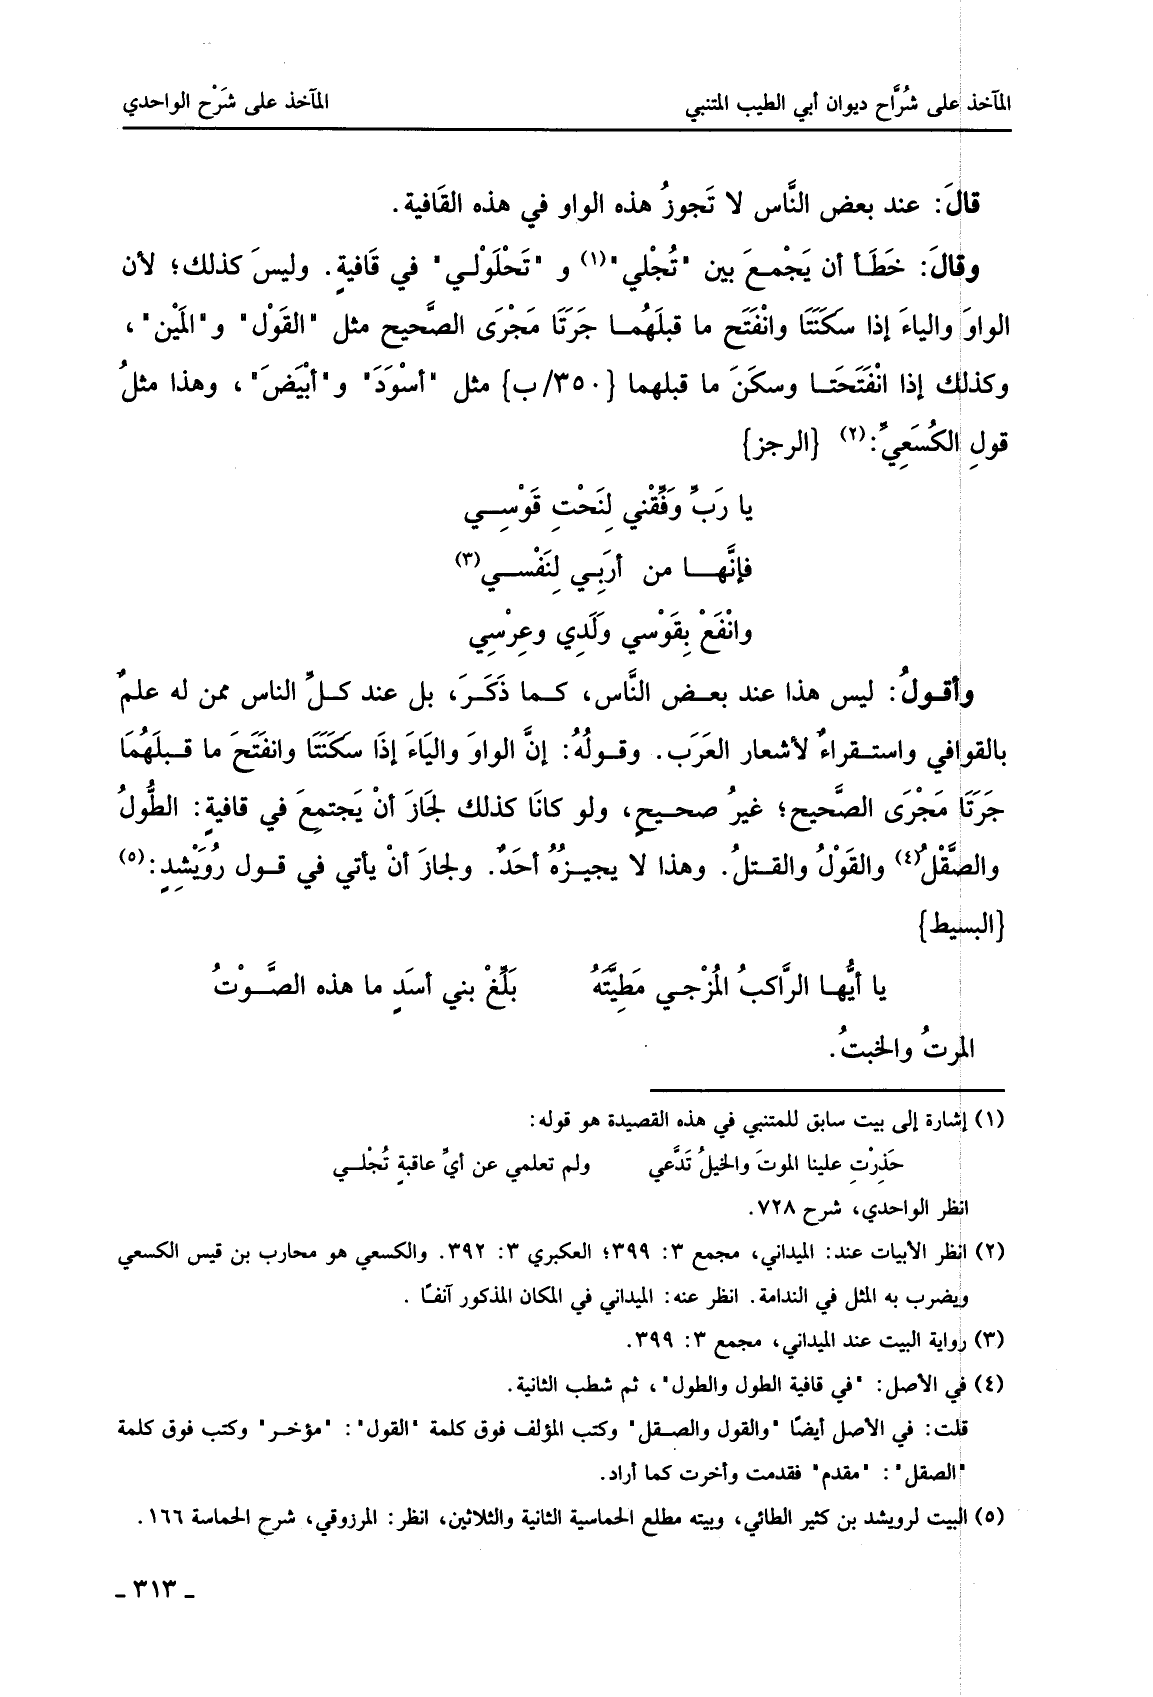 المآخذ على شُرَّاح ديوان أبي الطيب المتنبي المآخذ على شَرْح الواحدي
قالَ: عند بعض النَّاس لا تَجوزُ هذه الواو في هذه القَافية.
وقالَ: خَطَأ أن يَجْمعَ بين "تُجْلي"(١) و "تَحْلَوْلي" في قَافيةٍ. وليسَ كذلك؛ لأن
الواوَ والياءَ إذا سكَنَتَا وانْفَتَح ما قبلَهُما جَرَتَا مَجْرَى الصَّحيح مثل "القَوْل" و"المَيْن"،
وكذلك إذا انْفَتَحَتا وسكَنَ ما قبلهما {٣٥٠/ب} مثل "أسْوَدَ" و"أبْيَضَ"، وهذا مثلُ
قولِ الكُسَعِيِّ:(٢) {الرجز}
يا رَبِّ وَفِّقْني لِنَحْتِ قَوْسِي
فإنَّها من أرَبِي لِنَفْسي(٣)
وانْفَعْ بِقَوْسي وَلَدِي وعِرْسِي
وأقولُ: ليس هذا عند بعض النَّاس، كما ذَكَرَ، بل عند كلِّ الناس ممن له علمٌ
بالقوافي واستقراءٌ لأشعار العَرَب. وقولُهُ: إنَّ الواوَ واليَاءَ إذَا سكَنَتَا وانفَتَحَ ما قبلَهُمَا
جَرَتَا مَجْرَى الصَّحيح؛ غيرُ صحيحٍ، ولو كانَا كذلك لجَازَ أنْ يَجتمِعَ في قافيةٍ: الطُّولُ
والصَّقْلُ(٤) والقَوْلُ والقتلُ. وهذا لا يجيزُهُ أحَدٌ. ولجازَ أنْ يأتي في قول رُوَيْشِدٍ:(٥)
{البسيط}
يا أيُّها الرَّاكبُ المُزْجي مَطِيَّتَهُ بَلِّغْ بني أسَدٍ ما هذه الصَّوْتُ
المرتُ والخبتُ.
(١) إشارة إلى بيت سابق للمتنبي في هذه القصيدة هو قوله:
حَذِرْتِ علينا الموتَ والخيلُ تَدَّعي ولم تعلمي عن أيِّ عاقبةٍ تُجْلي
انظر الواحدي، شرح ٧٢٨.
(٢) انظر الأبيات عند: الميداني، مجمع ٣: ٣٩٩؛ العكبري ٣: ٣٩٢. والكسعي هو محارب بن قيس الكسعي
ويضرب به المثل في الندامة. انظر عنه: الميداني في المكان المذكور آنفًا .
(٣) رواية البيت عند الميداني، مجمع ٣: ٣٩٩.
(٤) في الأصل: "في قافية الطول والطول"، ثم شطب الثانية.
قلت: في الأصل أيضًا "والقول والصقل" وكتب المؤلف فوق كلمة "القول": "مؤخر" وكتب فوق كلمة
"الصقل": "مقدم" فقدمت وأخرت كما أراد.
(٥) البيت لرويشد بن كثير الطائي، وبيته مطلع الحماسية الثانية والثلاثين، انظر: المرزوقي، شرح الحماسة ١٦٦.
ـ ٣١٣ ـ